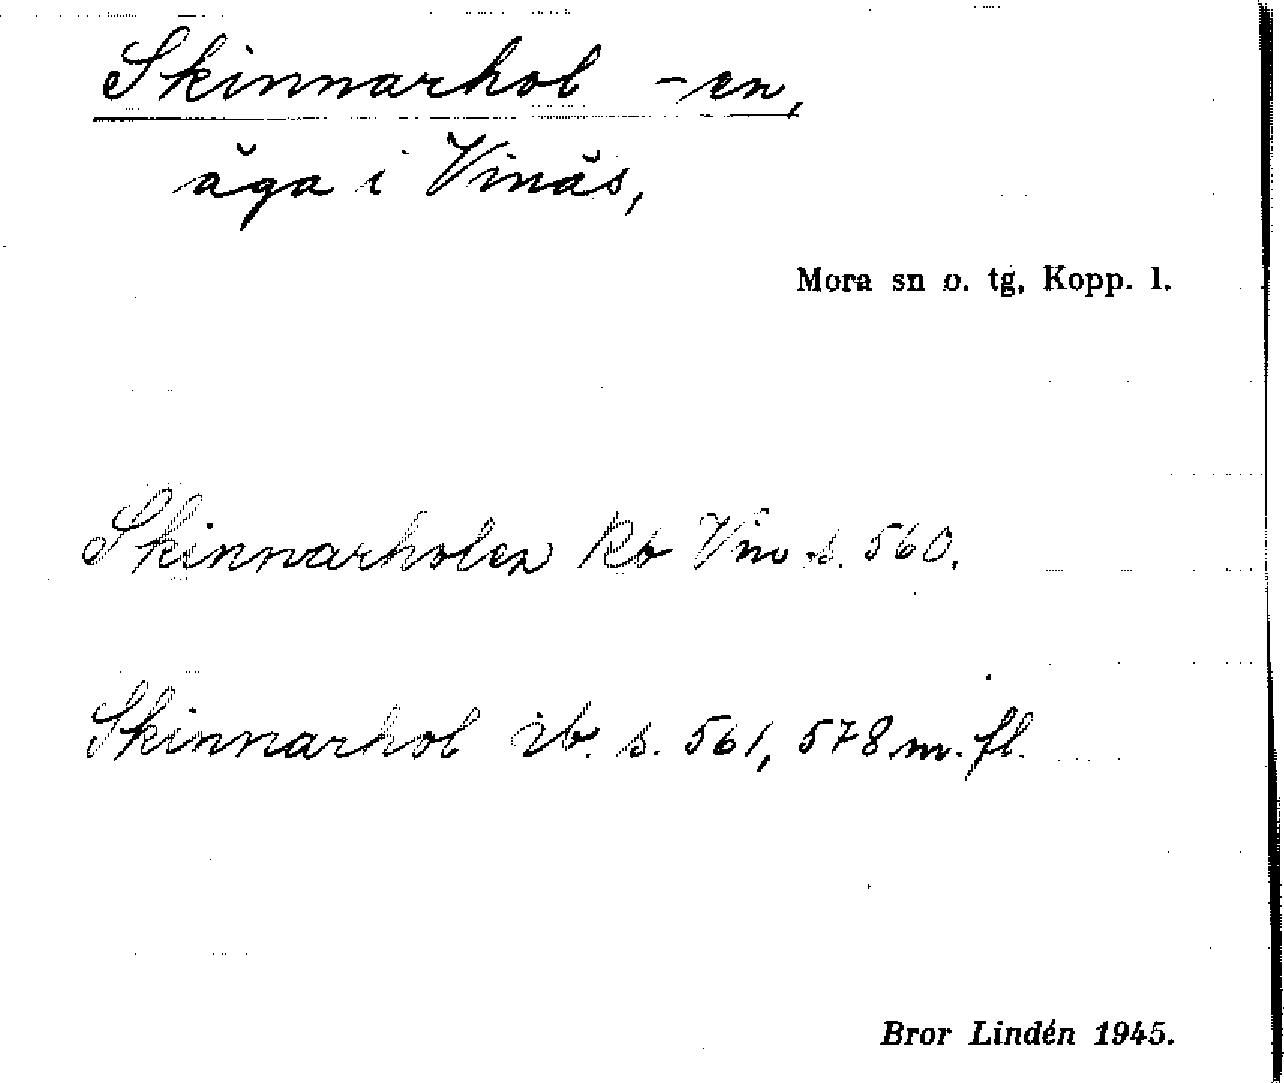 Skinnarhol -en,
äga i Vinäs,
Mora sn o. tg, Kopp. l.
Skinnarholen Kb Vin s. 560.
Skinnarhol ib. s. 561, 578 m. fl.
Bror Lindén 1945.